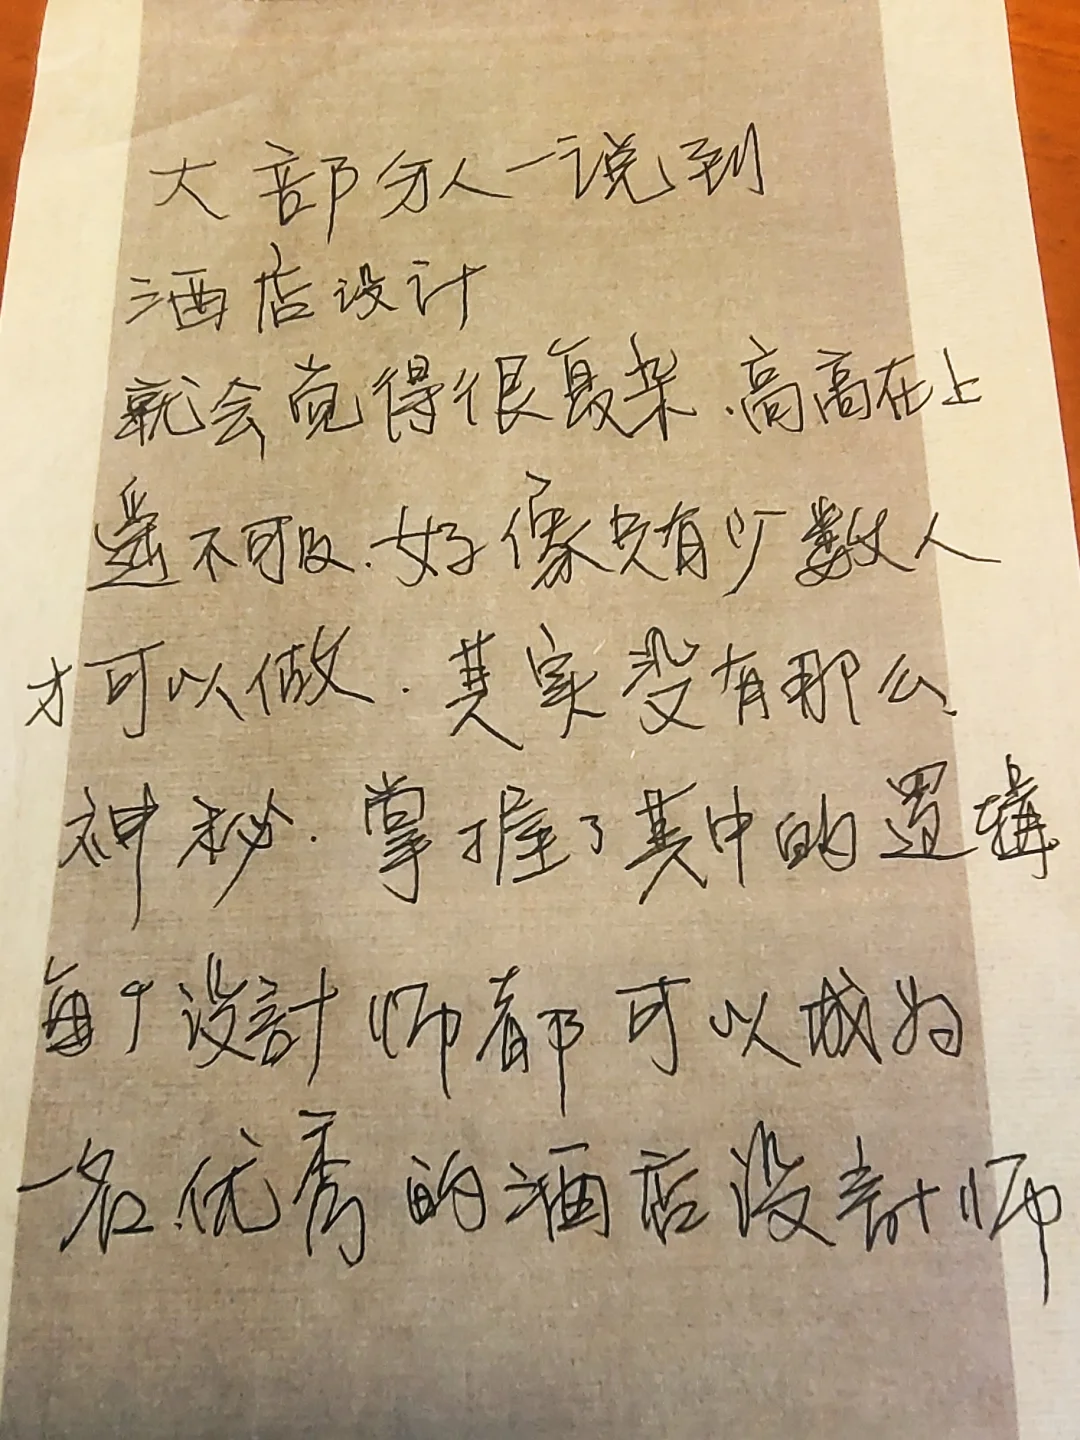 大部分人一说到
酒店设计
就会觉得很复杂.高高在上
遥不可及.好像只有少数人
才可以做.其实没有那么
神秘.掌握了其中的逻辑
每个设計师都可以成为
一名优秀的酒店设計师